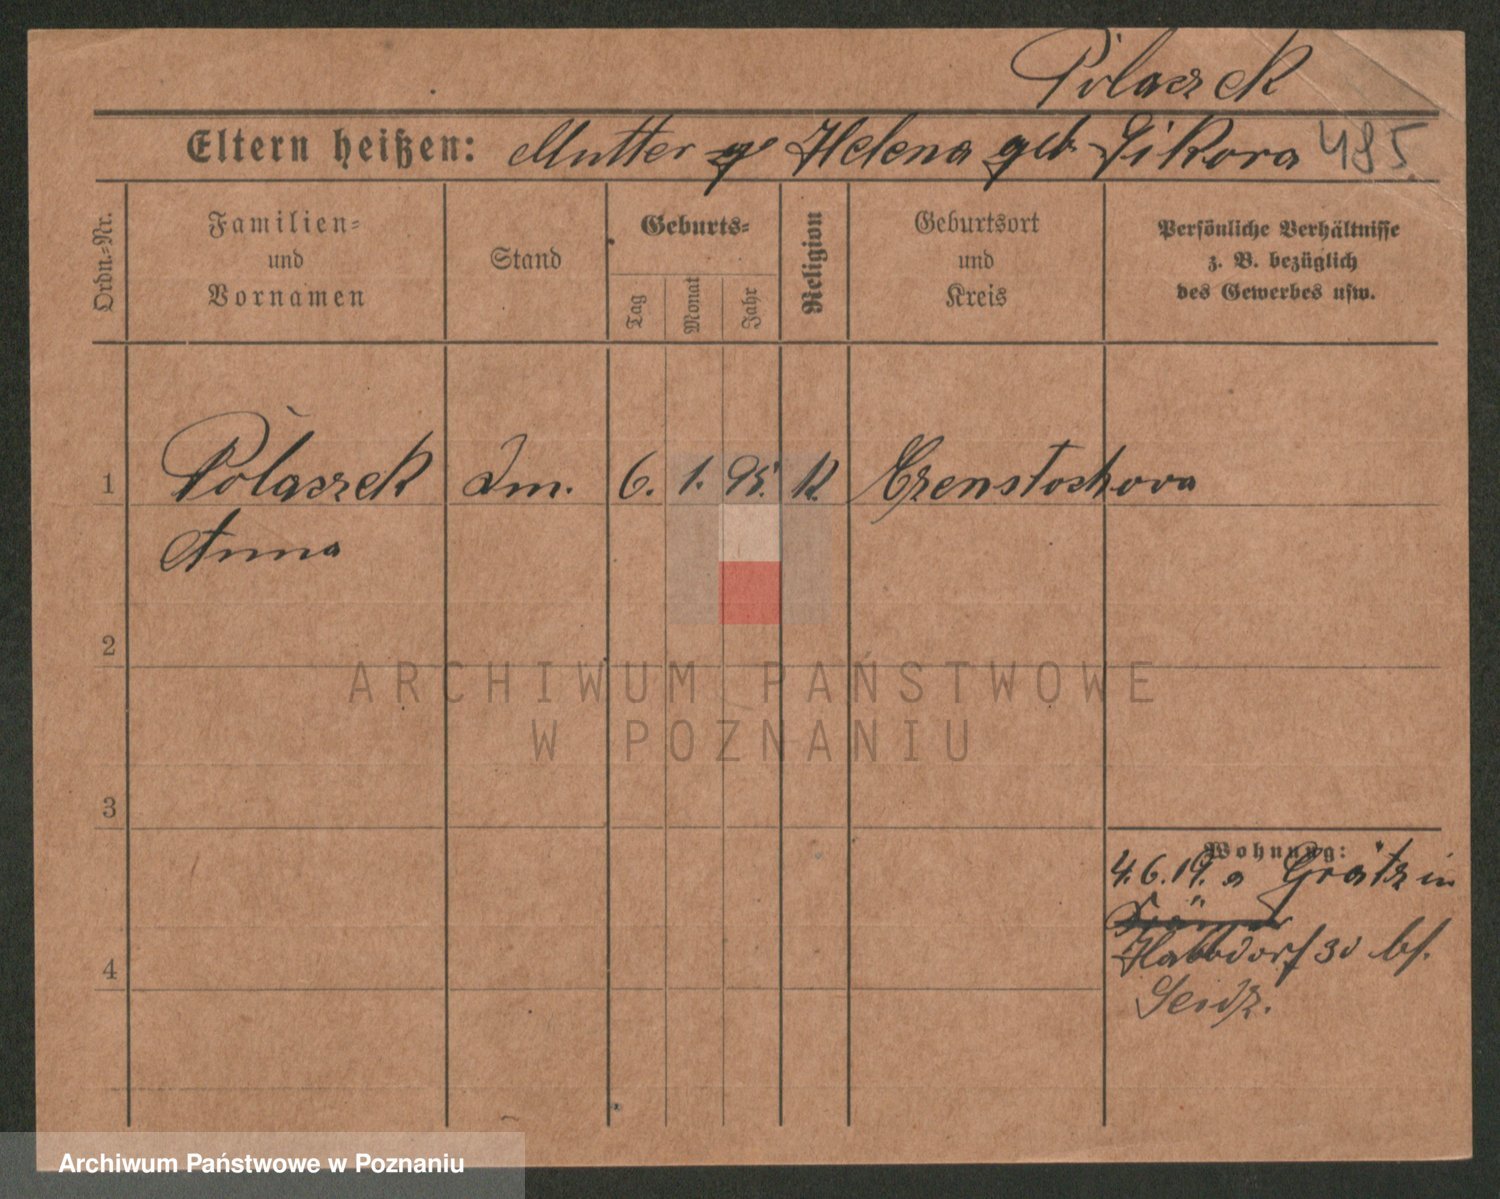 Polaszek
Eltern heißen: Mutter Helena geb. Sikora 485
Ordn.-Nr.
Familien-
und
Vornamen
Stand
Geburts-
Tag
Monat
Jahr
Religion
Geburtsort
und
Kreis
Persönliche Verhältnisse
z. B. bezüglich
des Gewerbes usw.
1 Polaszek 6. 1. 95. K. Czenstochova
Anna
2
ARCHIWUM PAŃSTWOWE
W POZNANIU
3
Wohnung:
4.6.19. a Grätz in
30 bs.
4
Archiwum Państwowe w Poznaniu